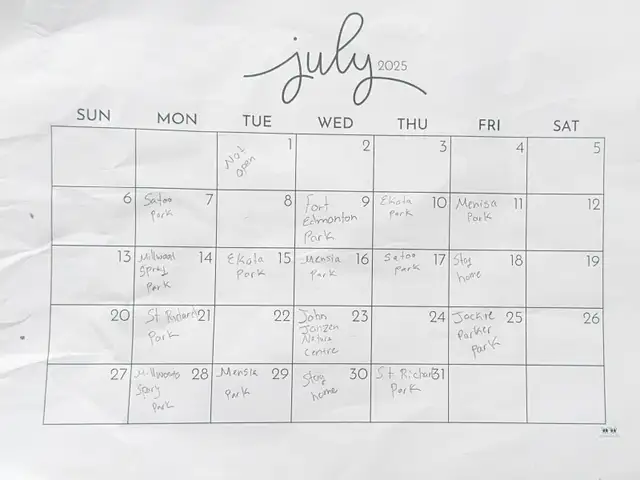 july 2025
SUN MON TUE WED THU FRI SAT
1 2 3 4 5
Not
open
6 7 8 9 10 11 12
Satoo
Park
Fort
Edmonton
Park
Ekota
Park
Menisa
Park
13 14 15 16 17 18 19
Millwood
Spray
Park
Ekota
Park
Mensia
Park
Satoo
Park
Stay
home
20 21 22 23 24 25 26
St. Richard
Park
John
Janzen
Nature
Centre
Jackie
Parker
Park
27 28 29 30 31
Millwoods
Spary
Park
Mensia
Park
Stay
home
St. Richard
Park